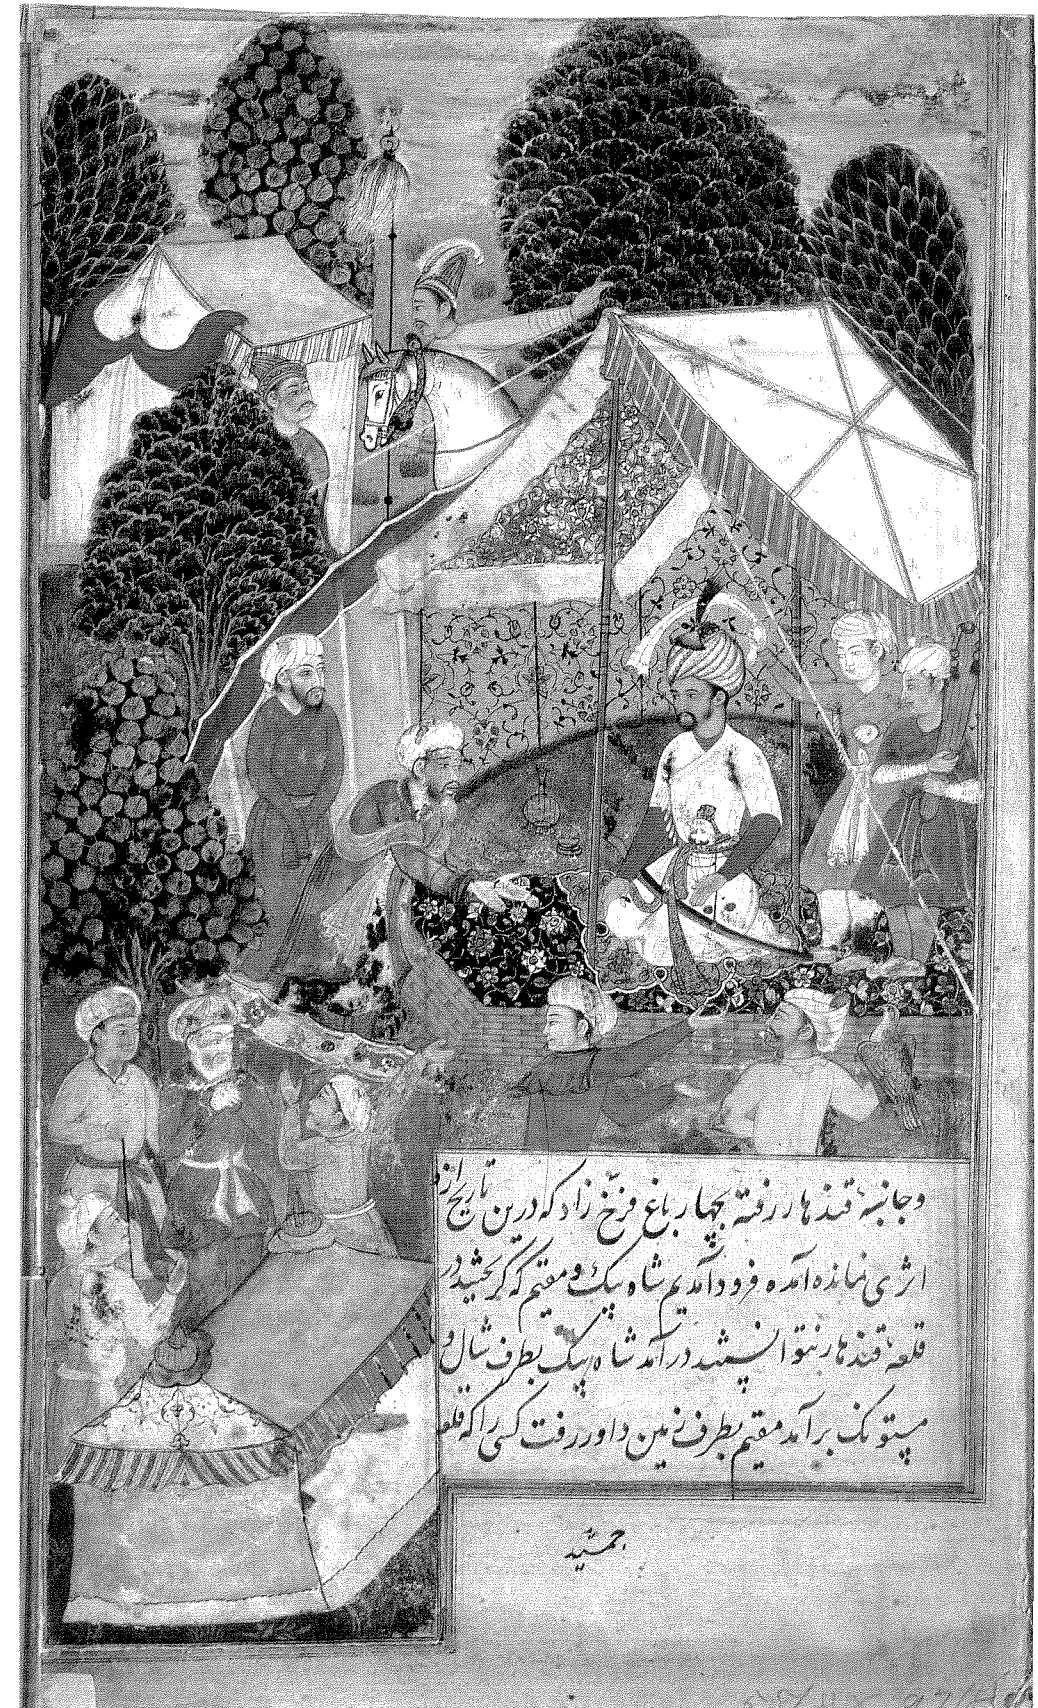 و جانب قندهار رفته بچهار باغ فرخ زاد که درین تاریخ ازو
اثری نمانده آمده فرود آمدیم شاه بیک و مقیم که گریخیدند در
قلعه قندهار نتوانستند درآمد شاه بیک بطرف شال و
مستونک برآمد مقیم بطرف زمین داور رفت کسی را که قلعه
جمشید